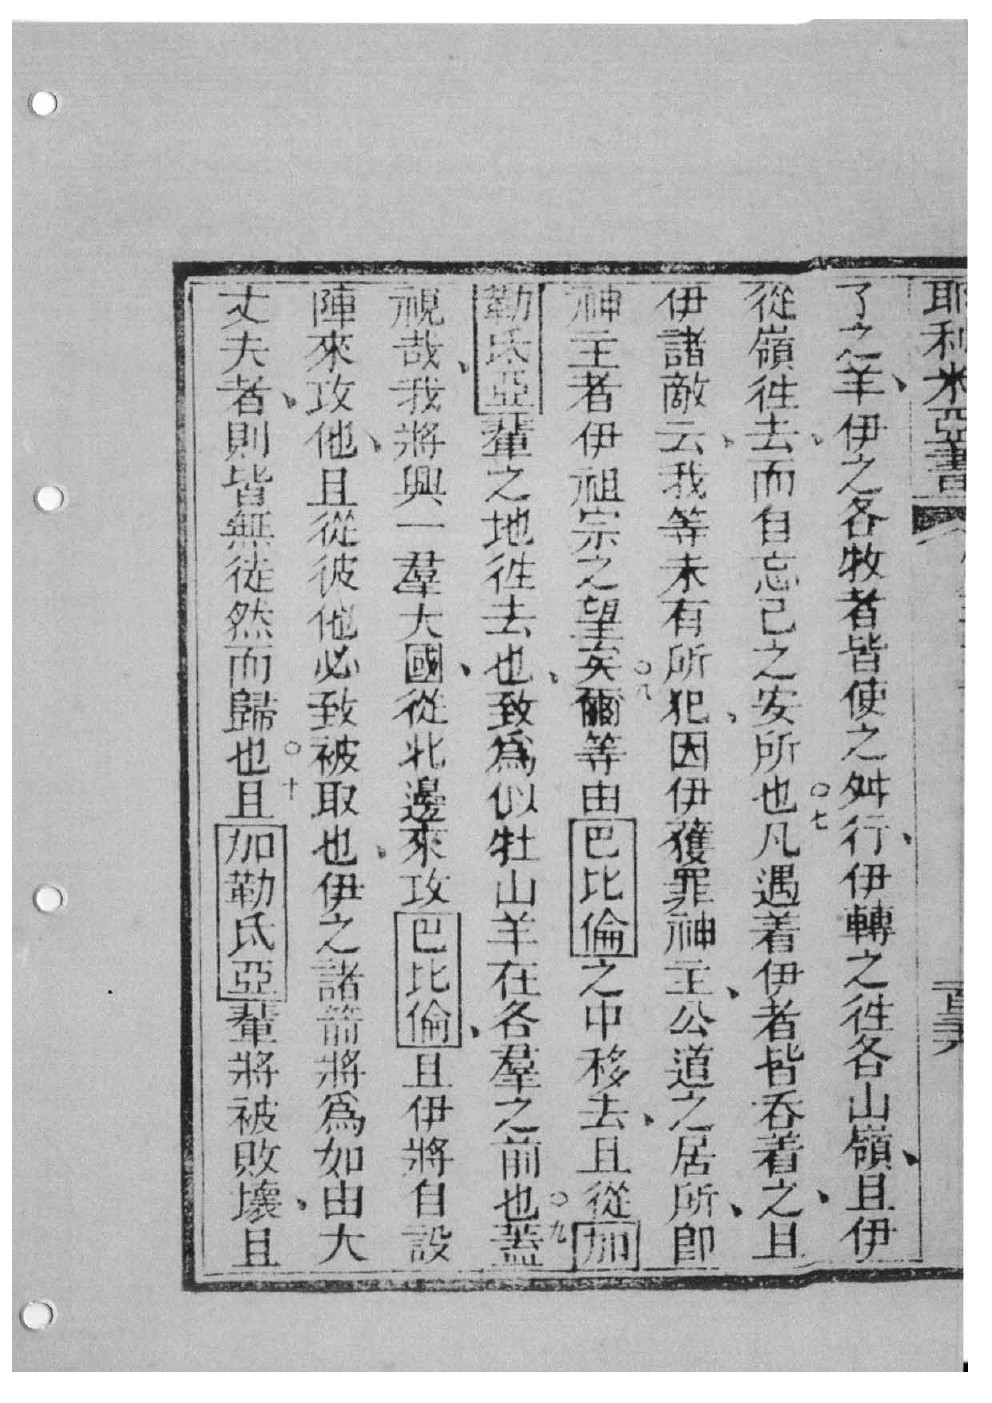 耶利米亞書
了之羊、伊之各牧者皆使之舛行、伊轉之徃各山嶺、且伊
從嶺徃去、而自忘己之安所也○七凡遇着伊者皆呑着之、且
伊諸敵云、我等未有所犯、因伊獲罪神主、公道之居所、卽
神主者伊祖宗之望矣○八爾等由巴比倫之中移去、且從加
勒氐亞輩之地徃去也、致爲似牡山羊在各羣之前也○九蓋
視哉、我將興一羣大國、從北邊來攻巴比倫、且伊將自設
陣來攻他、且從彼他必致被取也、伊之諸箭將爲如由大
丈夫者、則皆無徒然而歸也○十且加勒氐亞輩將被敗壞、且